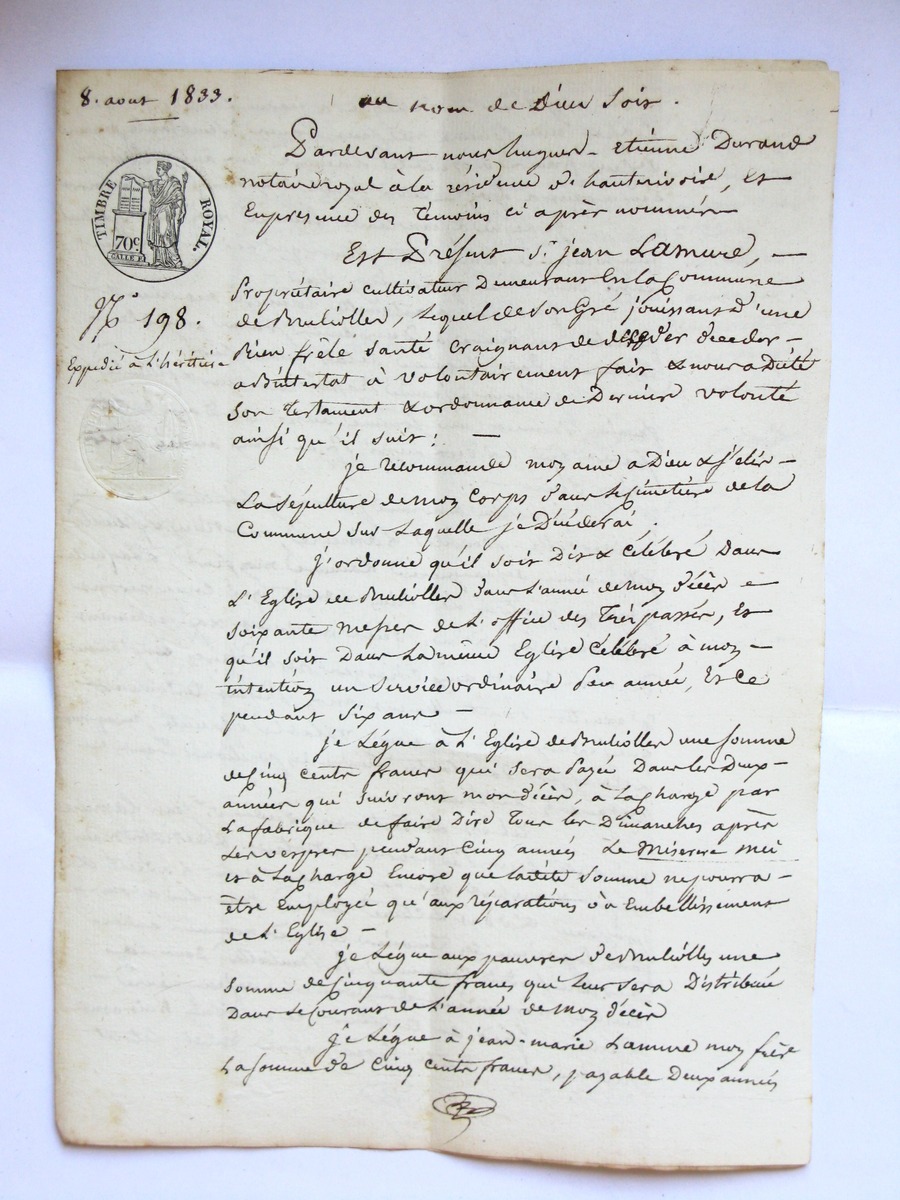 8. aout 1833.
au nom de Dieu soit.
TIMBRE ROYAL.
70c.
Pardevant nous hugues-étienne Durand
notaire royal à la résidence d'hauterivoire, et
En présence des témoins ci après nommés
Est Présent Sr. jean Lamure, —
Propriétaire cultivateur Demeurant En la Commune
de Brullolles, Lequel de Son Gré jouissant d'une
bien frêle santé Craignant de décéder —
ab intestat à volontairement fait & nous a Dicté
Son Testament & ordonnance de Dernière volonté
ainsi qu'il suit : —
N° 198.
Expédié à l'héritière
je recommande moy ame a Dieu & j'élis —
La sépulture de moy Corps dans le Cimetière de la
Commune sur Laquelle je Décéderai.
j'ordonne qu'il soit Dit & Célébré Dans
L'Eglise de Brullolles dans L'année de moy décès —
soixante messes de L'office des Trépassés, et
qu'il soit Dans La même Eglise Célébré à moy —
intention un service ordinaire par année, Et Ce
pendant six ans —
je Lègue à L'Eglise de Brullolles une somme
de Cinq cents francs qui sera Payée Dans les Deux —
années qui suivront mon décès, à La Charge par
La fabrique de faire Dire Tous les Dimanches après
Les vêpres pendant Cinq années Le Miserere mei
et à La Charge Encore que la dite somme ne pourra —
être employée qu'aux réparations Embellissement
de L'Eglise —
je Lègue aux pauvres de Brullolles une
somme de Cinquante francs qui Leur sera Distribuée
Dans Le Courant de L'année de moy décès
je Lègue à jean-marie Lamure moy frère
La somme de Cinq cents francs, payable Deux années